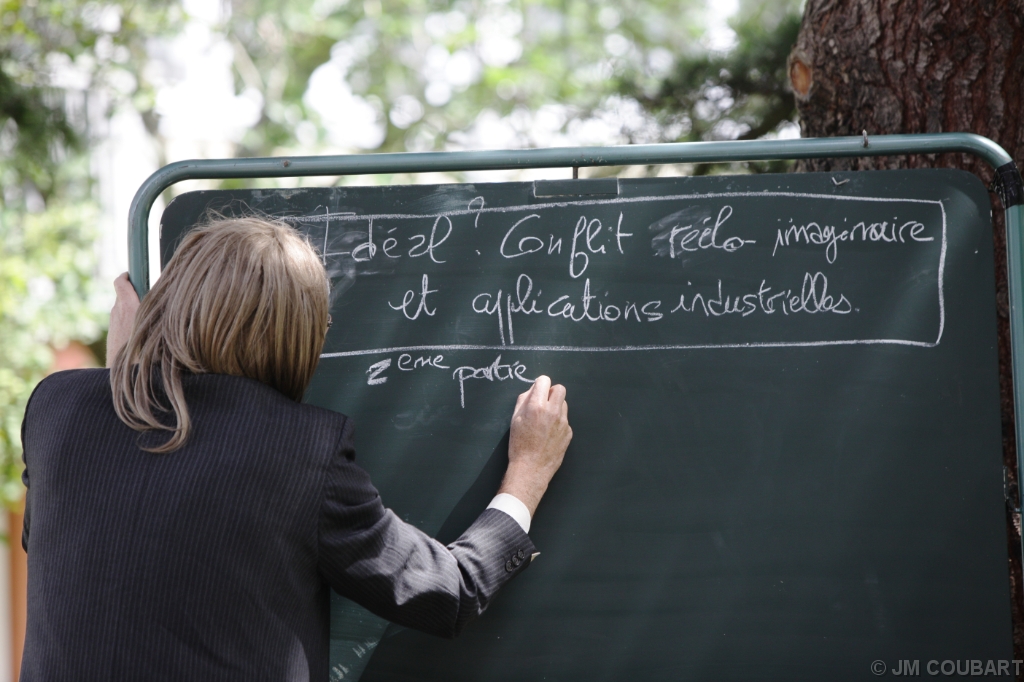 Idéal ? Conflit réélo- imaginaire
et applications industrielles.
2eme partie
© JM COUBART